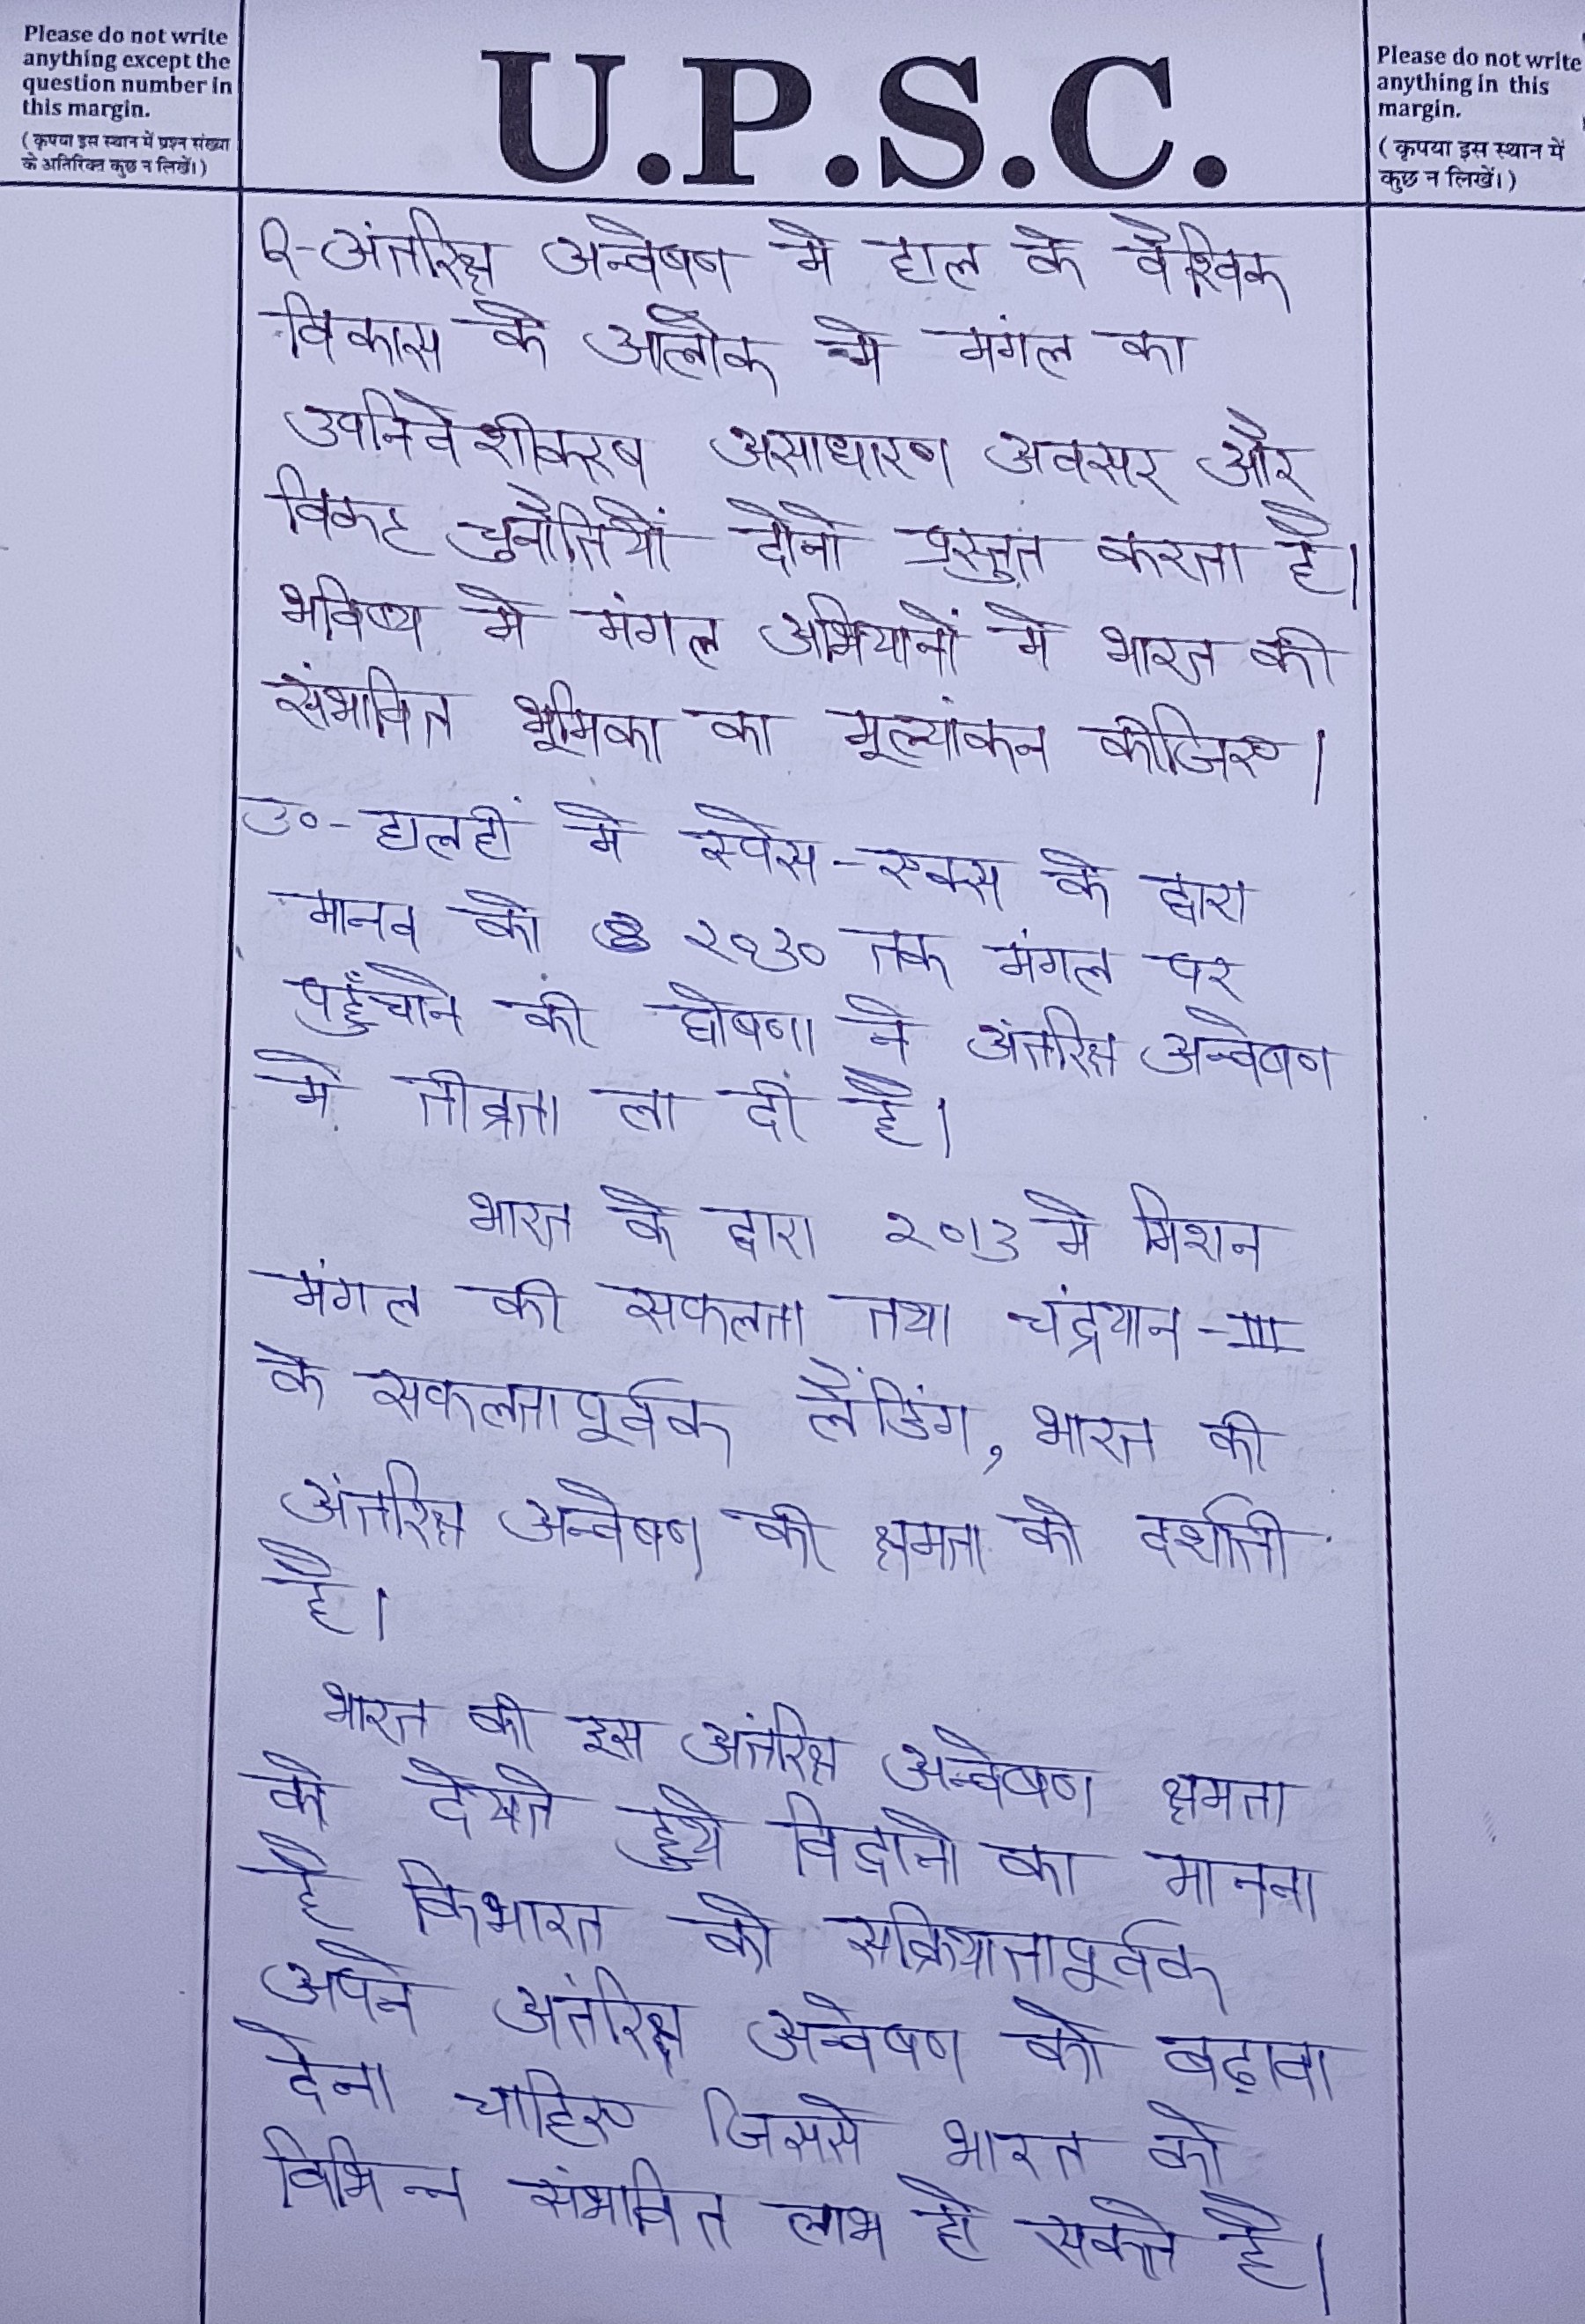 Please do not write
anything except the
question number in
this margin.
(कृपया इस स्थान में प्रश्न संख्या
के अतिरिक्त कुछ न लिखें।)
U.P.S.C.
Please do not write
anything in this
margin.
(कृपया इस स्थान में
कुछ न लिखें।)
Q-अंतरिक्ष अन्वेषण मे हाल के वैश्विक
विकास के आलोक मे मंगल का
उपनिवेशीकरण असाधारण अवसर और
विकट चुनौतियों दोनो प्रस्तुत करता है।
भविष्य मे मंगल अभियानों मे भारत की
संभावित भूमिका का मूल्यांकन कीजिए।
उ०- हालही मे स्पेस-एक्स के द्वारा
मानव को २०३० तक मंगल पर
पहुँचाने की घोषणा ने अंतरिक्ष अन्वेषण
मे तीव्रता ला दी है।
भारत के द्वारा २०१३ मे मिशन
मंगल की सफलता तथा चंद्रयान-III
के सफलतापूर्वक लैंडिंग, भारत की
अंतरिक्ष अन्वेषण की क्षमता को दर्शाती
है।
भारत की इस अंतरिक्ष अन्वेषण क्षमता
को देखते हुये विद्वानो का मानना
है कि भारत को सक्रियातापूर्वक
अपने अंतरिक्ष अन्वेषण को बढ़ावा
देना चाहिए जिससे भारत को
विभिन्न संभावित लाभ हो सकते है।